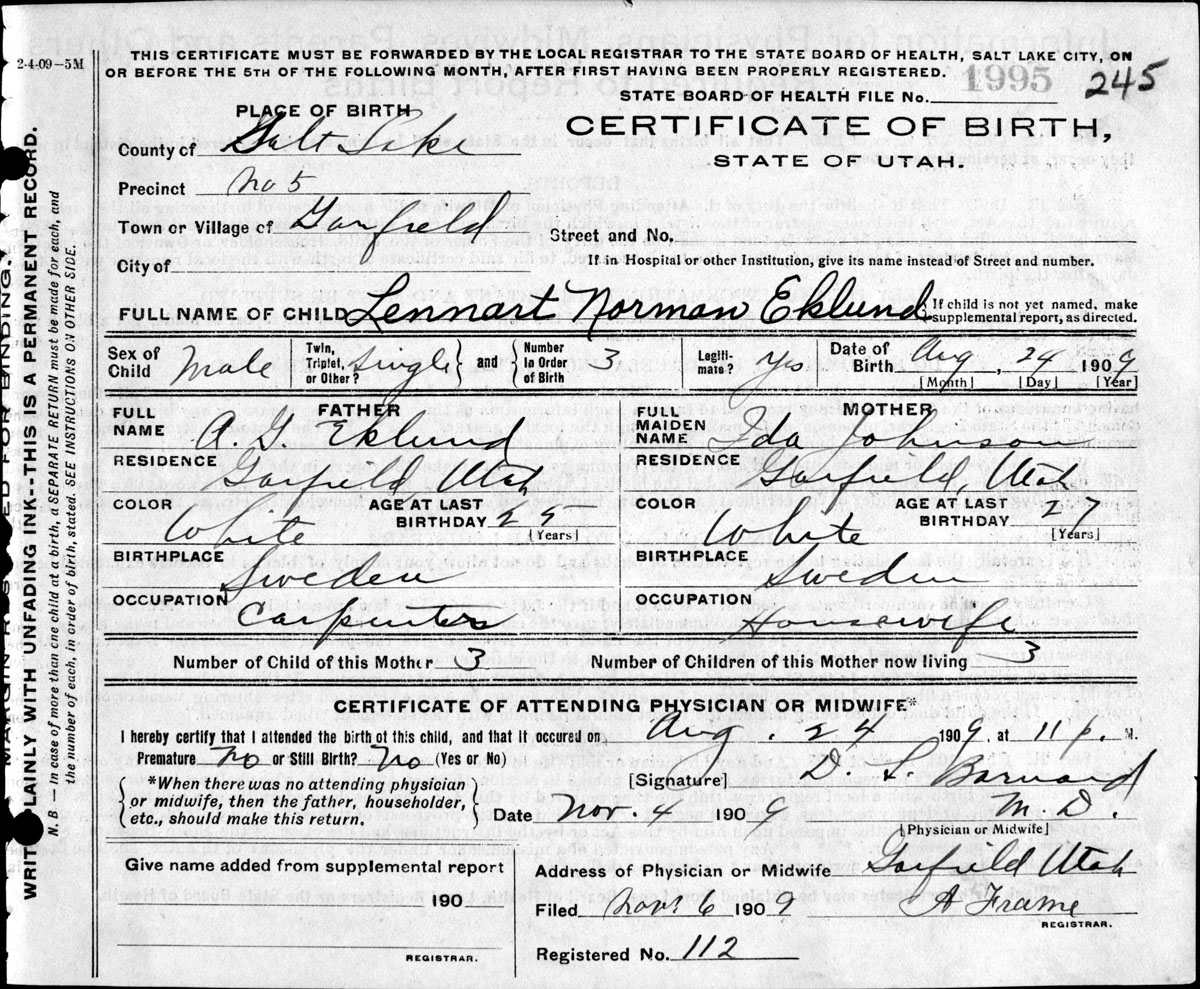 2-4-09-5M
THIS CERTIFICATE MUST BE FORWARDED BY THE LOCAL REGISTRAR TO THE STATE BOARD OF HEALTH, SALT LAKE CITY, ON
OR BEFORE THE 5TH OF THE FOLLOWING MONTH, AFTER FIRST HAVING BEEN PROPERLY REGISTERED.
1995 245
STATE BOARD OF HEALTH FILE No.
PLACE OF BIRTH
CERTIFICATE OF BIRTH,
STATE OF UTAH.
County of Salt Lake
Precinct No 5
Town or Village of Garfield
Street and No.
City of
If in Hospital or other Institution, give its name instead of Street and number.
FULL NAME OF CHILD Lennart Norman Eklund
{If child is not yet named, make
supplemental report, as directed.
Sex of Child Male
Twin, Triplet, or Other? Single } and { Number in Order of Birth 3
Legiti-mate? Yes
Date of Birth Aug, 24 1909
[Month] [Day] [Year]
FATHER
FULL NAME A. G Eklund
RESIDENCE Garfield, Utah
COLOR White
AGE AT LAST BIRTHDAY 25
[Years]
BIRTHPLACE Sweden
OCCUPATION Carpenter
MOTHER
FULL MAIDEN NAME Ida Johnson
RESIDENCE Garfield, Utah
COLOR White
AGE AT LAST BIRTHDAY 27
[Years]
BIRTHPLACE Sweden
OCCUPATION Housewife
Number of Child of this Mother 3 Number of Children of this Mother now living 3
CERTIFICATE OF ATTENDING PHYSICIAN OR MIDWIFE*
I hereby certify that I attended the birth of this child, and that it occured on Aug. 24 1909, at 11 p. M.
Premature No or Still Birth? No (Yes or No)
[Signature] D. L Barnard
M. D.
[Physician or Midwife]
{*When there was no attending physician
or midwife, then the father, householder,
etc., should make this return.}
Date Nov. 4 1909
Give name added from supplemental report
190
REGISTRAR.
Address of Physician or Midwife Garfield Utah
Filed Nov 6 1909 A Frame
REGISTRAR.
Registered No. 112
LAINLY WITH UNFADING INK--THIS IS A PERMANENT RECORD.
N. B — In case of more than one child at a birth, a SEPARATE RETURN must be made for each, and
the number of each, in order of birth, stated. SEE INSTRUCTIONS ON OTHER SIDE.